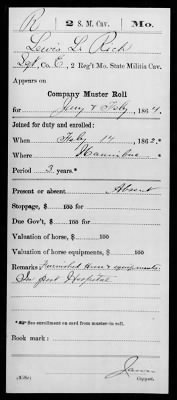 R 2 S. M. Cav. Mo.
Lewis L. Rich
Sgt, Co. E, 2 Reg't Mo. State Militia Cav.
Appears on
Company Muster Roll
for Jany & Feby, 1864.
Joined for duty and enrolled:
When Feby 14, 1862.*
Where Hannibal
Period 3 years.*
Present or absent Absent
Stoppage, $ 100 for
Due Gov't, $ 100 for
Valuation of horse, $ 100
Valuation of horse equipments, $ 100
Remarks: Furnished arms & equipments.
In post Hospital
*☞ See enrollment on card from muster-in roll.
Book mark:
Copyist.